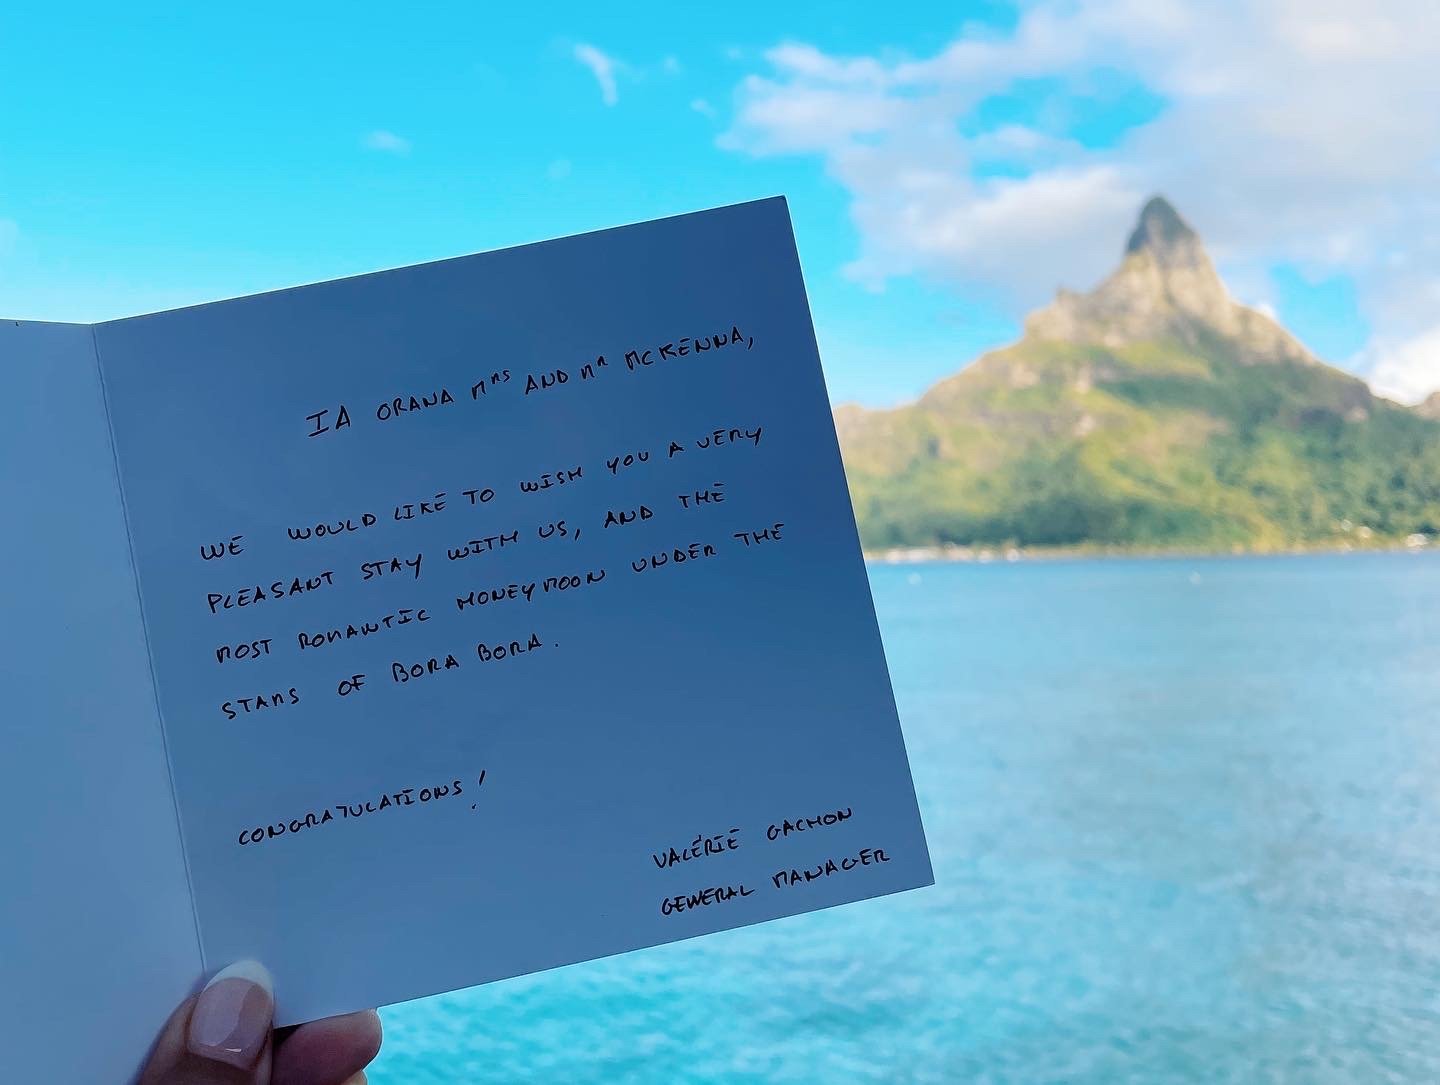 IA ORANA MRS AND MR MCKENNA,
WE WOULD LIKE TO WISH YOU A VERY
PLEASANT STAY WITH US, AND THE
MOST ROMANTIC HONEYMOON UNDER THE
STARS OF BORA BORA.
CONGRATULATIONS!
VALÉRIE GACHON
GENERAL MANAGER